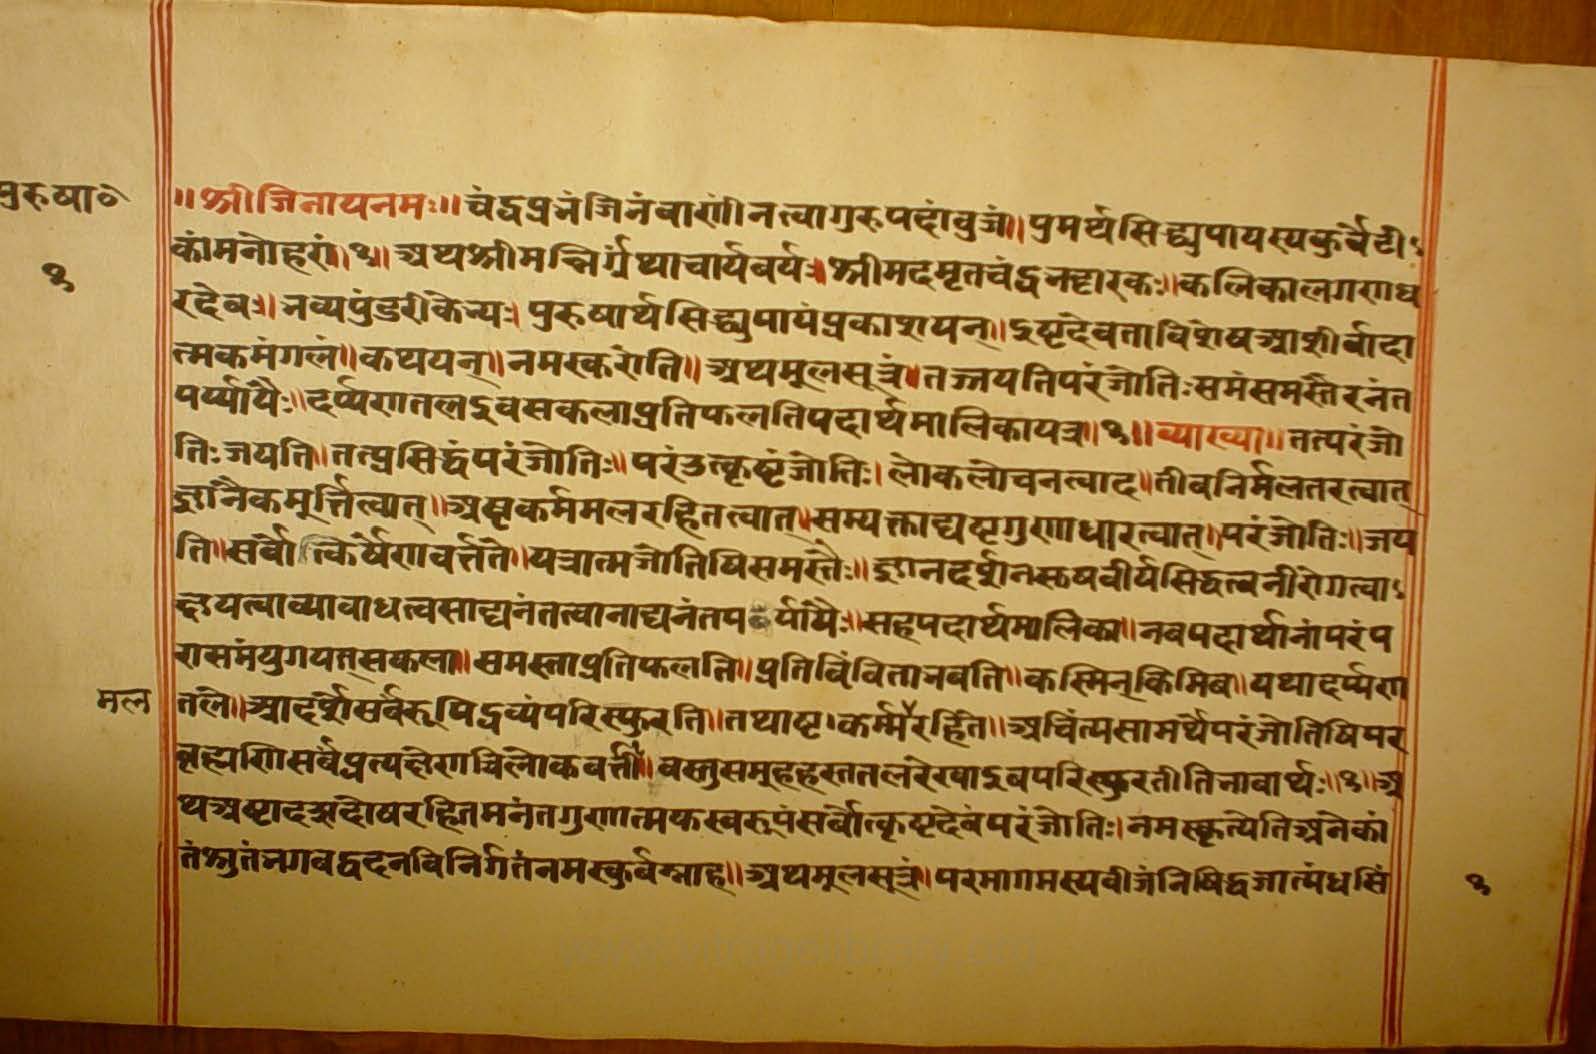 पुरुषा०
१
॥श्रीजिनायनमः॥ चंद्रप्रभंजिनंवाणींनत्वागुरुपदांवुजं॥पुमर्थसिद्ध्युपायस्यकुर्वेटी
कांमनोहरां॥१॥ अथश्रीमन्निर्ग्रंथाचार्यवर्यः॥श्रीमदमृतचंद्रभट्टारकः॥कलिकालगणध
रदेवः॥भव्यपुंडरीकेभ्यः।पुरुषार्थसिद्ध्युपायंप्रकाशयन्॥इष्टदेवताविशेषआशीर्वादा
त्मकमंगलं॥कथयन्॥नमस्करोति॥अथमूलसूत्रं॥तज्जयतिपरंजोतिःसमंसमस्तैरनंत
पर्य्यायैः॥दर्प्पणतलइवसकलाप्रतिफलतिपदार्थमालिकायत्र॥१॥व्याख्या॥तत्परंजो
तिःजयति॥तत्प्रसिद्धंपरंजोतिः॥परंउत्कृष्टंजोतिः।लोकलोचनत्वाद॥तीवनिर्मलतरत्वात्
ज्ञानैकमूर्त्तित्वात्॥अष्टकर्ममलरहितत्वात्॥सम्यक्ताद्यष्टगुणाधारत्वात्॥परंजोतिः॥जय
ति॥सर्वोत्कर्षेणवर्त्तते॥यत्रात्मजोतिषिसमस्तैः॥ज्ञानदर्शनसुषवीर्यसिद्धत्वनीरोगत्वा
क्षयत्वाव्यावाधत्वसाद्यनंतत्वानाद्यनंतपर्यायैः॥सहपदार्थमालिका॥नवपदार्थानांपरंप
रासमंयुगपत्सकला॥समस्ताप्रतिफलति॥प्रतिविंविताभवति॥कस्मिन्किमिव॥यथादर्प्पण
मल
तले॥आदर्शेसर्वरूपिद्रव्यंपरिस्फुरति॥तथाष्टकर्म्मरहिते॥अचिंत्यसामर्थेपरंजोतिषिपर
ब्रह्मणिसर्वप्रत्यक्षेणत्रिलोकवर्त्ती॥वस्तुसमूहहस्ततलरेखाइवपरिस्फुरतीतिभावार्थः॥१॥अ
थअष्टादशदोषरहितमनंतगुणात्मकस्वरूपंसर्वोत्कृष्टदेवंपरंजोतिः।नमस्कृत्येतिअनेकां
तंश्रुतंभगवद्वदनविनिर्गतंनमस्कुर्वन्नाह॥अथमूलसूत्रं॥परमागमस्यवीजंनिषिद्धजात्यंधसिं
१